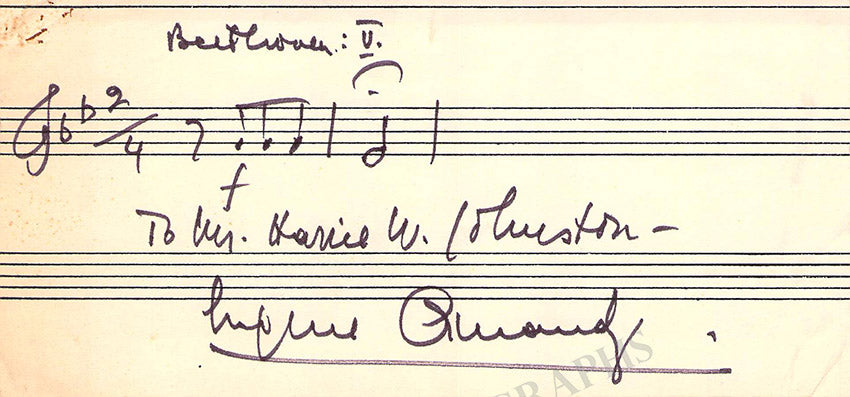 Beethoven: V.
2/4
f
To Mr. Harrie W. Johnston –
Eugene Ormandy
GRAPHS